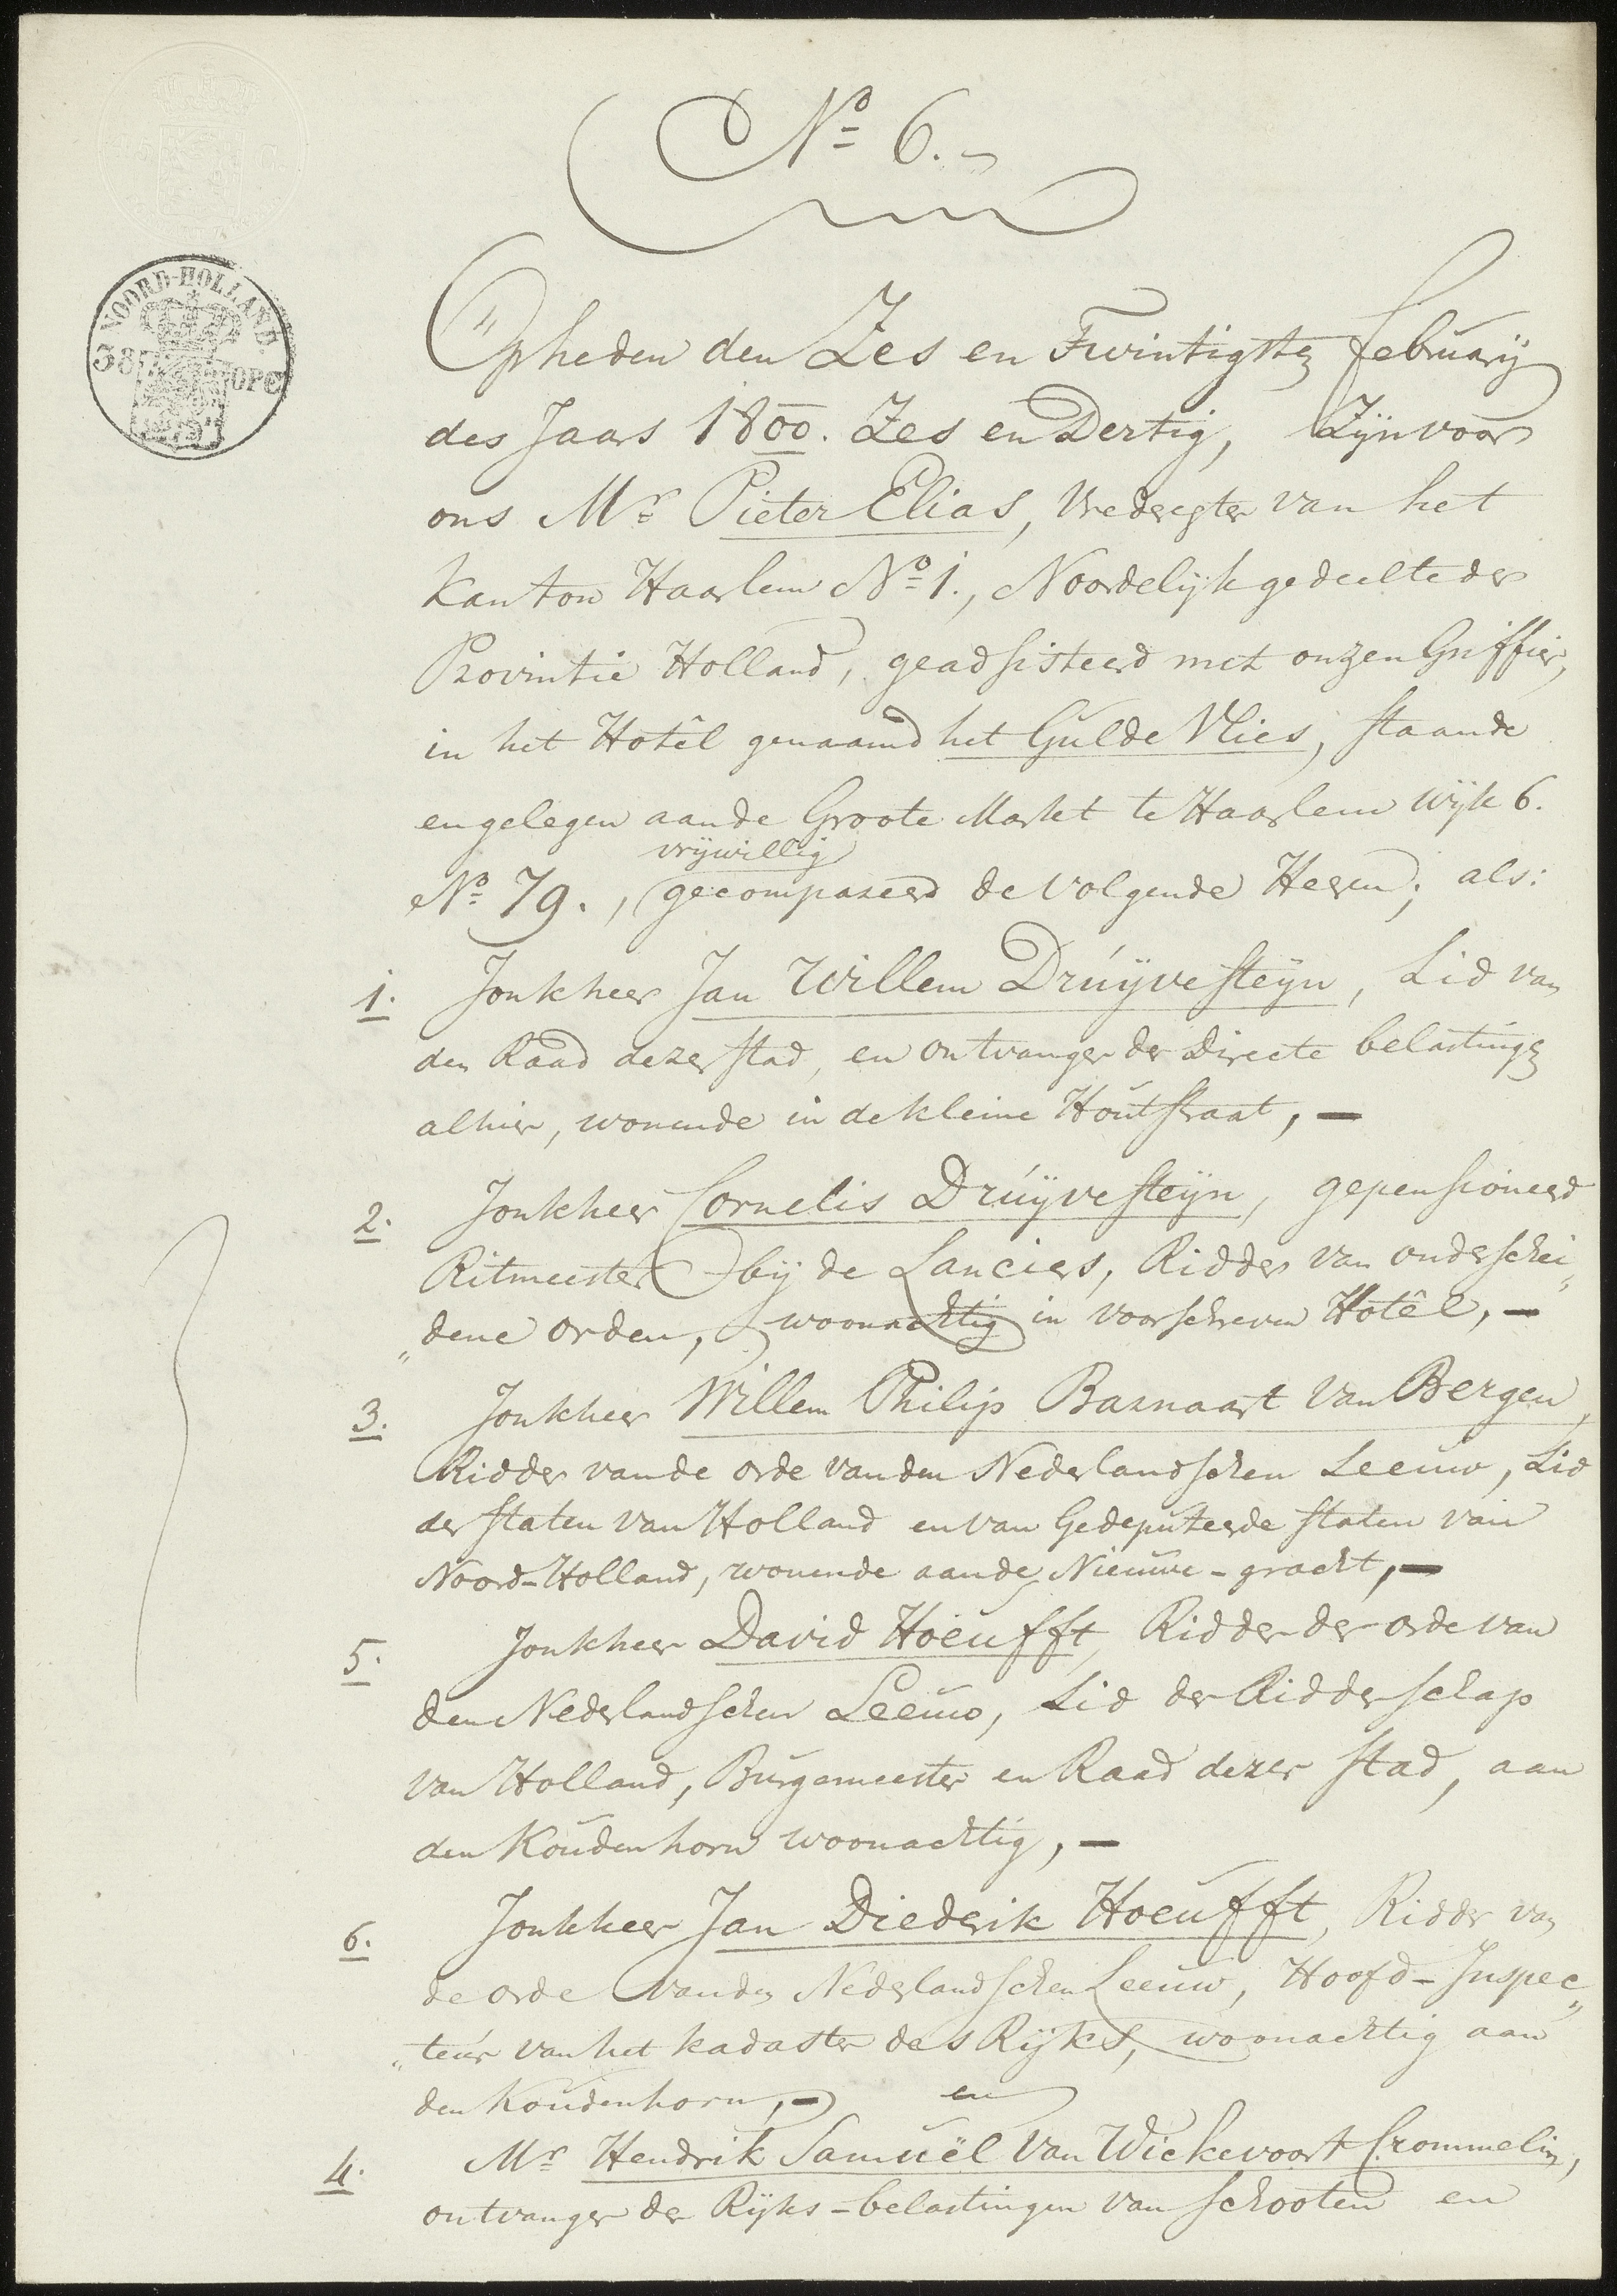 Nº 6.
NOORD-HOLLAND.
38
OPC
Opheden den Zes en Twintigsten february
des Jaars 1800. Zes en Dertig, Zijn voor
ons Mr Pieter Elias, Vrederegter van het
Kanton Haarlem Nº 1., Noordelijk gedeelte der
Provintie Holland, geadsisteerd met onzen Griffier,
in het Hotêl genaamd het Gulde Vlies, staande
en gelegen aan de Groote Markt te Haarlem wijk 6.
vrijwillig
Nº 79., gecompareerd de volgende Heeren; als:
1. Jonkheer Jan Willem Druijvesteijn, Lid van
den Raad dezer stad, en ontvanger der Directe belastingen
alhier, wonende in de kleine Houtstraat, —
2. Jonkheer Cornelis Druijvesteijn, gepensioneerd
Ritmeester bij de Lanciers, Ridder van onderschei„
„dene orden, woonachtig in voorschreven Hotêl, —
3. Jonkheer Willem Philip Barnaart van Bergen,
Ridder van de orde van den Nederlandschen Leeuw, Lid
der staten van Holland en van Gedeputeerde staten van
Noord-Holland, wonende aan de Nieuwe-gracht, —
5. Jonkheer David Hoeufft, Ridder der orde van
den Nederlandschen Leeuw, Lid der Ridderschap
van Holland, Burgemeester en Raad dezer stad, aan
den Koudenhorn woonachtig, —
6. Jonkheer Jan Diederik Hoeufft, Ridder van
de orde van den Nederlandschen Leeuw, Hoofd-Inspec„
„teur van het kadaster des Rijks, woonachtig aan
den Koudenhorn, — en
4. Mr Hendrik Samuël van Wickevoort Crommelin,
ontvanger der Rijks-belastingen van schooten en